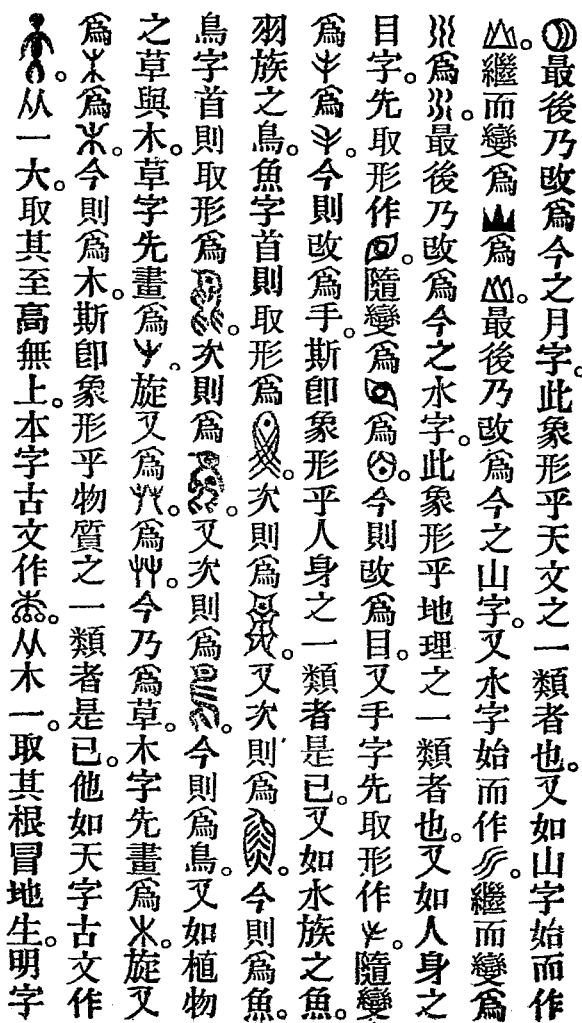 最後乃改爲今之月字。此象形乎天文之一類者也。又如山字始而作
。繼而變爲爲。最後乃改爲今之山字。又水字始而作。繼而變爲
爲。最後乃改爲今之水字。此象形乎地理之一類者也。又如人身之
目字。先取形作。隨變爲爲。今則改爲目。又手字先取形作。隨變
爲爲。今則改爲手。斯卽象形乎人身之一類者是已。又如水族之魚。
羽族之鳥。魚字首則取形爲。次則爲。又次則爲。今則爲魚。
鳥字首則取形爲。次則爲。又次則爲。今則爲鳥。又如植物
之草與木。草字先畫爲。旋又爲。爲。今乃爲草。木字先畫爲。旋又
爲爲。今則爲木。斯卽象形乎物質之一類者是已。他如天字古文作
。从一大。取其至高無上。本字古文作。从木一。取其根冒地生。明字